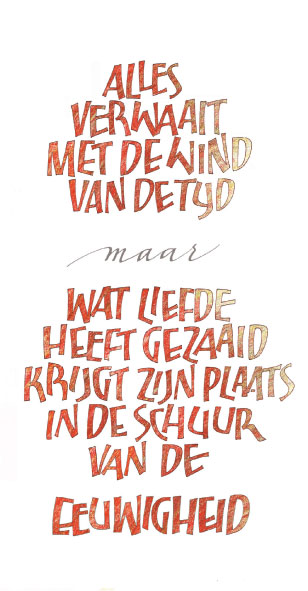 ALLES
VERWAAIT
MET DE WIND
VAN DE TYD
maar
WAT LIEFDE
HEEFT GEZAAID
KRIJGT ZIJN PLAATS
IN DE SCHUUR
VAN DE
EEUWIGHEID